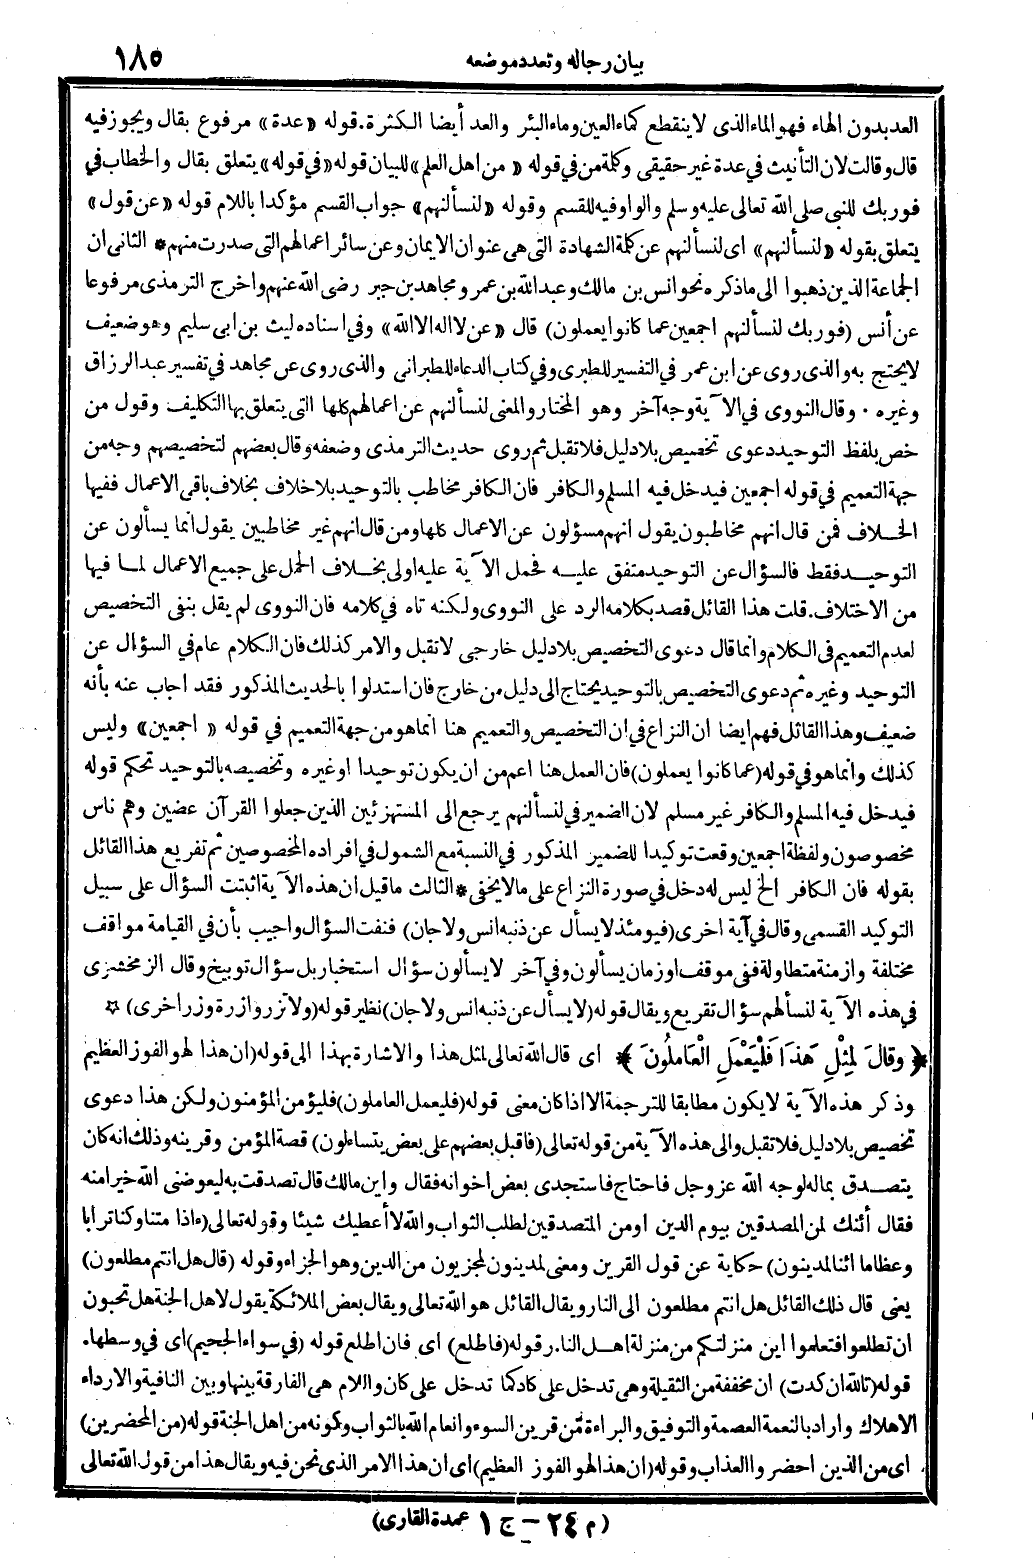 بيان رجاله وتعدد موضعه
١٨٥
العد بدون الهاء فهو الماء الذى لا ينقطع كماء العين وماء البئر والعد أيضا الكثرة. قوله «عدة» مرفوع بقال ويجوز فيه
قال وقالت لان التأنيث في عدة غير حقيقى وكلمة من في قوله «من اهل العلم» للبيان قوله «في قوله» يتعلق بقال والخطاب في
فوربك للنبى صلى الله تعالى عليه وسلم والواو فيه للقسم وقوله «لنسألنهم» جواب القسم مؤكدا باللام قوله «عن قول»
يتعلق بقوله «لنسألنهم» اى لنسألنهم عن كلمة الشهادة التى هى عنوان الايمان وعن سائر اعمالهم التى صدرت منهم * الثانى ان
الجماعة الذين ذهبوا الى ما ذكره نحو انس بن مالك وعبد الله بن عمر ومجاهد بن جبر رضى الله عنهم واخرج الترمذى مرفوعا
عن أنس (فوربك لنسألنهم اجمعين عما كانوا يعملون) قال «عن لا اله الا الله» وفي اسناده ليث بن ابى سليم وهو ضعيف
لا يحتج به والذى روى عن ابن عمر في التفسير للطبرى وفي كتاب الدعاء للطبرانى والذى روى عن مجاهد في تفسير عبد الرزاق
وغيره · وقال النووى في الآية وجه آخر وهو المختار والمعنى لنسألنهم عن اعمالهم كلها التى يتعلق بها التكليف وقول من
خص بلفظ التوحيد دعوى تخصيص بلا دليل فلا تقبل ثم روى حديث الترمذى وضعفه وقال بعضهم لتخصيصهم وجه من
جهة التعميم في قوله اجمعين فيدخل فيه المسلم والكافر فان الكافر مخاطب بالتوحيد بلا خلاف بخلاف باقى الاعمال ففيها
الخـلاف فمن قال انهم مخاطبون يقول انهم مسؤلون عن الاعمال كلها ومن قال انهم غير مخاطبين يقول انما يسألون عن
التوحيـد فقط فالسؤال عن التوحيد متفق عليـه فحمل الآية عليه اولى بخلاف الحمل على جميع الاعمال لمـا فيها
من الاختلاف. قلت هذا القائل قصد بكلامه الرد على النووى ولكنه تاه في كلامه فان النووى لم يقل بنفى التخصيص
لعدم التعميم في الكلام وانما قال دعوى التخصيص بلا دليل خارجى لا تقبل والامر كذلك فان الكلام عام في السؤال عن
التوحيد وغيره ثم دعوى التخصيص بالتوحيد يحتاج الى دليل من خارج فان استدلوا بالحديث المذكور فقد اجاب عنه بأنه
ضعيف وهذا القائل فهم ايضا ان النزاع في ان التخصيص والتعميم هنا انما هو من جهة التعميم في قوله «اجمعين» وليس
كذلك وانما هو في قوله (عما كانوا يعملون) فان العمل هنا اعم من ان يكون توحيدا او غيره وتخصيصه بالتوحيد تحكم قوله
فيدخل فيه المسلم والكافر غير مسلم لان الضمير في لنسألنهم يرجع الى المستهزئين الذين جعلوا القرآن عضين وهم ناس
مخصوصون ولفظة اجمعين وقعت توكيدا للضمير المذكور في النسبة مع الشمول في افراده المخصوصين ثم تفريع هذا القائل
بقوله فان الكافر الخ ليس له دخل في صورة النزاع على ما لا يخفى * الثالث ما قيل ان هذه الآية اثبتت السؤال على سبيل
التوكيد القسمى وقال في آية اخرى (فيومئذ لا يسأل عن ذنبه انس ولا جان) فنفت السؤال واجيب بأن في القيامة مواقف
مختلفة وازمنة متطاولة ففى موقف او زمان يسألون وفي آخر لا يسألون سؤال استخبار بل سؤال توبيخ وقال الزمخشرى
في هذه الآية لنسألهم سؤال تقريع ويقال قوله (لا يسأل عن ذنبه انس ولا جان) نظير قوله (ولا تزر وازرة وزر اخرى) ☆
﴿وقالَ لِمِثْلِ هَذَا فَلْيَعْمَلِ الْعَامِلُونَ﴾ اى قال الله تعالى لمثل هذا والاشارة بهذا الى قوله (ان هذا لهو الفوز العظيم
وذكر هذه الآية لا يكون مطابقا للترجمة الا اذا كان معنى قوله (فليعمل العاملون) فليؤمن المؤمنون ولكن هذا دعوى
تخصيص بلا دليل فلا تقبل والى هذه الآية من قوله تعالى (فاقبل بعضهم على بعض يتساءلون) قصة المؤمن وقرينه وذلك انه كان
يتصـدق بماله لوجه الله عز وجل فاحتاج فاستجدى بعض اخوانه فقال واين مالك قال تصدقت به ليعوضنى الله خيرا منه
فقال أئنك لمن المصدقين بيوم الدين او من المتصدقين لطلب الثواب والله لا أعطيك شيئا وقوله تعالى (ءاذا متنا وكنا ترابا
وعظاما ائنا لمدينون) حكاية عن قول القرين ومعنى لمدينون لمجزيون من الدين وهو الجزاء وقوله (قال هل انتم مطلعون)
يعنى قال ذلك القائل هل انتم مطلعون الى النار ويقال القائل هو الله تعالى ويقال بعض الملائكة يقول لاهل الجنة هل تحبون
ان تطلعوا فتعلموا اين منزلتكم من منزلة اهـل النار. قوله (فاطلع) اى فان اطلع قوله (في سواء الجحيم) اى في وسطها.
قوله (تالله ان كدت) ان مخففة من الثقيلة وهى تدخل على كاد كما تدخل على كان واللام هى الفارقة بينها وبين النافية والارداء
الاهلاك واراد بالنعمة العصمة والتوفيق والبراءة من قرين السوء وانعام الله بالثواب وكونه من اهل الجنة قوله (من المحضرين)
اى من الذين احضروا العذاب وقوله (ان هذا لهو الفوز العظيم) اى ان هذا الامر الذى نحن فيه ويقال هذا من قول الله تعالى
(م ٢٤ - ج ١ عمدة القارى)